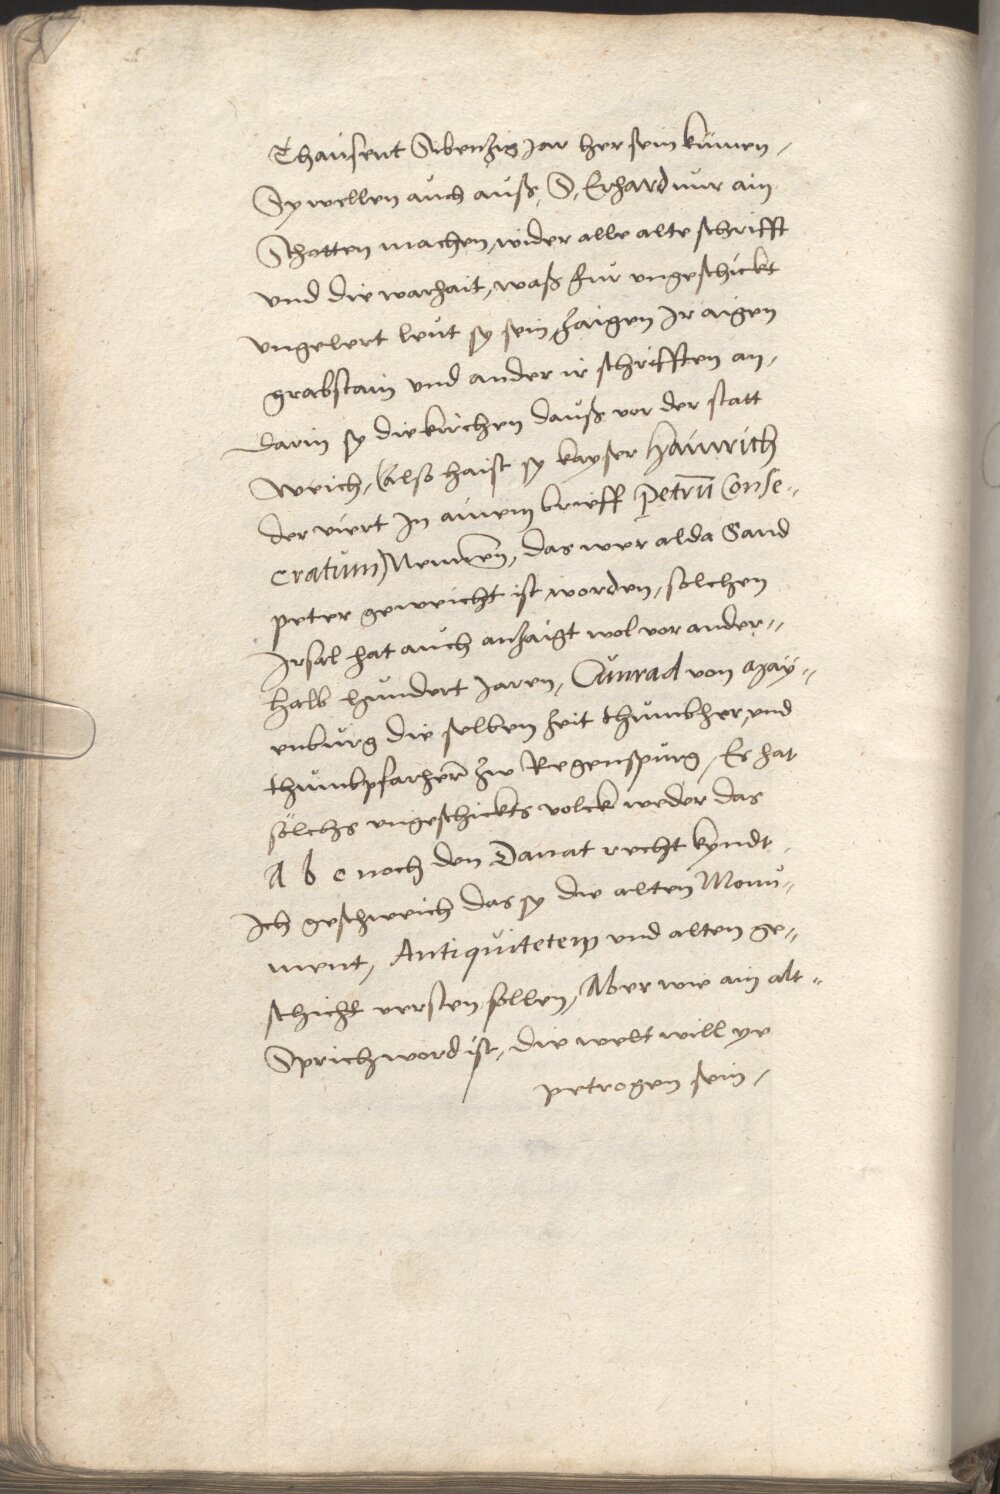 Thausent Sibenzig Jar her sein kumen,
Sy wellen auch auß, S, Erhard nur ain
Schotten machen, wider alle alte schrifft
vnd die warhait, waß fur vngeschickt
vngelert leut sy sein, zaigen Jr aigen
grabstain vnd ander ir schrifften an,
darin sy die kirchen dauß vor der statt
Weich, (also haist sy kayser Hainrich
der viert In ainem brieff petrū Conse-
cratum) Nennen, das wer alda Sand
peter geweicht ist worden, solchen
Irsal hat auch anzaigt wol vor ander-
halb hundert Jaren, Cunrad von May-
enburg die selben zeit thumbher, vnd
thumbpfarher zw Regenspurg, Er hat
sölchs vngeschickts volck weder das
A b c noch den Danat recht kyndt,
Ich geschweich das sy die alten Monu-
ment, Antiquiteten vnd alten ge-
schicht versten sollen, Aber wie ain alt-
Sprichword ist, die welt will ye
petrogen sein,